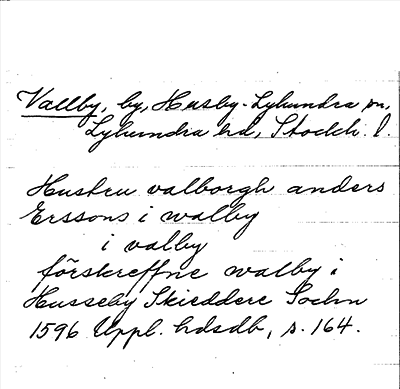 Vallby, by, Husby-Lyhundra sn,
Lyhundra hd, Stockh. l.
Hustru valborgh anders
Erssons i walby
i valby
förskreffne walby i
Husseby Skieddere Sochn
1596 Uppl. hdsdb, s. 164.